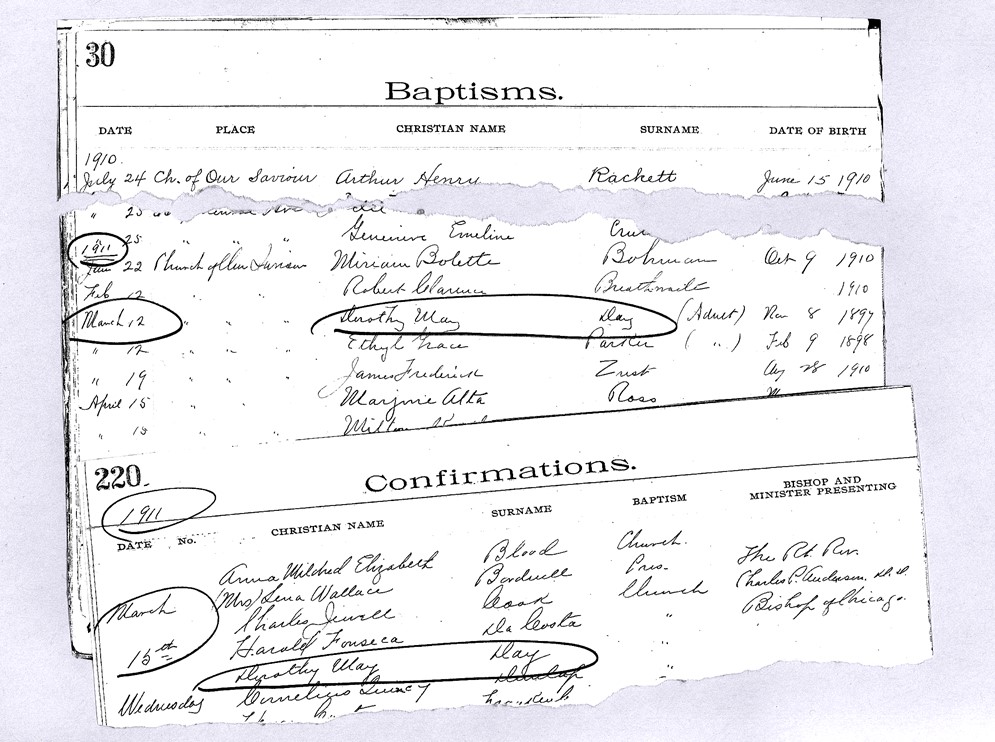 30
Baptisms.
DATE PLACE CHRISTIAN NAME SURNAME DATE OF BIRTH
1910.
July 24 Ch. of Our Saviour Arthur Henry Rackett June 15 1910
" 25
25 " " Genevieve Emeline
1911
22 Church of Our Saviour Miriam Bolette Bohrman Oct 9 1910
Feb 12 Robert Clarence Breathwait 1910
March 12 " " " Dorothy May Day (Adult) Nov 8 1897
" 12 " " " Ethyl Grace Parker ( " ) Feb 9 1898
" 19 " " " James Frederick Zust Aug 28 1910
April 15 " " " Marjorie Alta Ross
" 15 " "
220.
Confirmations.
1911
DATE No. CHRISTIAN NAME SURNAME BAPTISM BISHOP AND MINISTER PRESENTING
Anna Mildred Elizabeth Blood Church. The Rt. Rev.
(Mrs) Lena Wallace Bordwell Pres. Charles P. Anderson, D.D.
March Charles Jewell Cook Church Bishop of Chicago.
Harold Fonseca Da Costa "
15th Dorothy May Day
Wednesday Cornelius Quincy Dunlap "